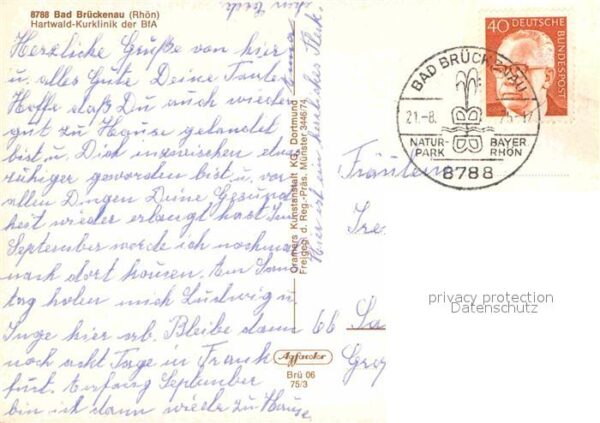 8788 Bad Brückenau (Rhön)
Hartwald-Kurklinik der BfA
Herzliche Grüße von hier
u. alles Gute Deine Tante
Hoffe daß Du auch wieder
gut zu Hause gelandet
bist u. Dich inzwischen etwas
ruhiger geworden bist u. vor
allen Dingen Deine Gesund
heit wieder erlangt hast. Im
September werde ich nochmal
nach dort kommen. Am Sonn
tag holen mich Ludwig u.
Inge hier ab. Bleibe dann
noch acht Tage in Frank
furt. Anfang September
bin ich dann wieder zu Hause
Hier ist ein herrliches
Cramers Kunstanstalt KG, Dortmund
Freigeg. d. Reg.-Präs. Münster 3446/74
Agfacolor
Brü 06
75/3
40 DEUTSCHE BUNDESPOST
BAD BRÜCKENAU
21.-8. 75-17
NATUR- BAYER
PARK RHÖN
8788
Fräulein
Ire
66 Sa
privacy protection
Datenschutz